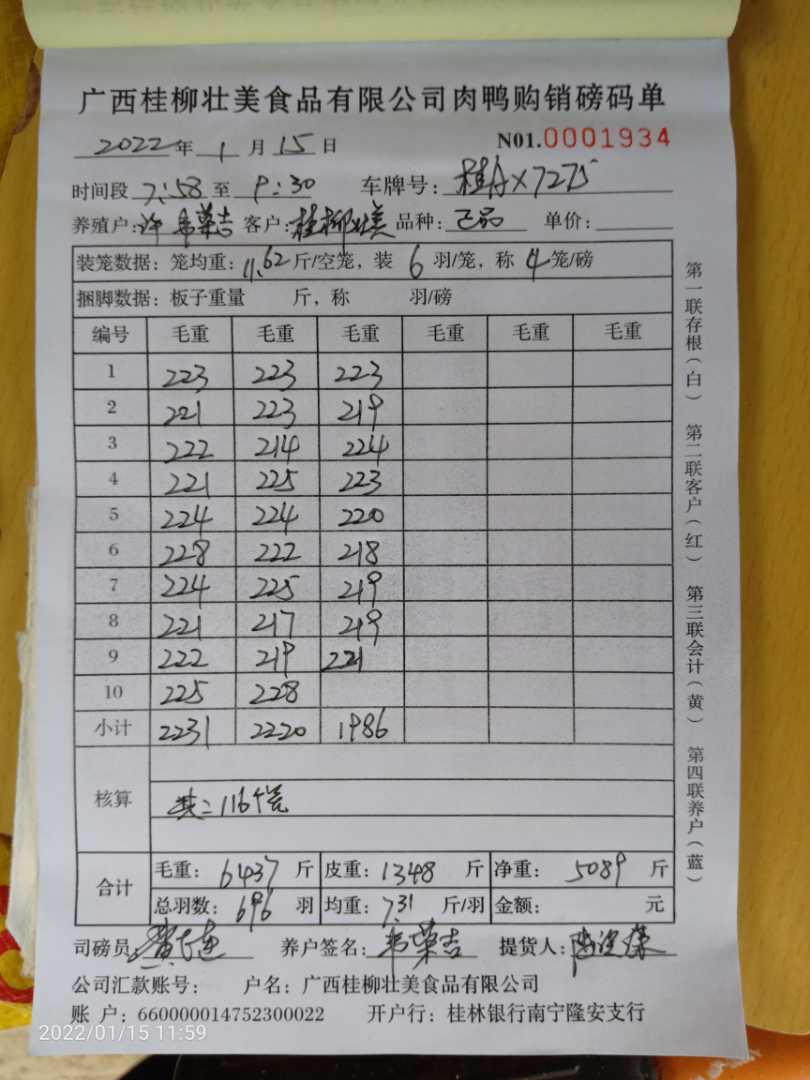 广西桂柳壮美食品有限公司肉鸭购销磅码单
2022年 1 月 15 日 N01.0001934
时间段 7:58 至 9:30 车牌号: 桂AX7275
养殖户: 许 韦荣吉 客户: 桂柳壮美 品种: 正品 单价:
装笼数据: 笼均重: 11.62 斤/空笼, 装 6 羽/笼, 称 4 笼/磅
捆脚数据: 板子重量 斤, 称 羽/磅
编号 毛重 毛重 毛重 毛重 毛重 毛重
1 223 223 223
2 221 223 219
3 222 214 224
4 221 225 223
5 224 224 220
6 228 222 218
7 224 225 219
8 221 217 219
9 222 219 221
10 225 228
小计 2231 2220 1986
核算 共: 116个笼
合计 毛重: 6437 斤 皮重: 1348 斤 净重: 5089 斤
总羽数: 696 羽 均重: 7.31 斤/羽 金额: 元
司磅员: 养户签名: 韦荣吉 提货人:
公司汇款账号: 户名: 广西桂柳壮美食品有限公司
账 户: 660000014752300022 开户行: 桂林银行南宁隆安支行
2022/01/15 11:59
第一联存根(白) 第二联客户(红) 第三联会计(黄) 第四联养户(蓝)